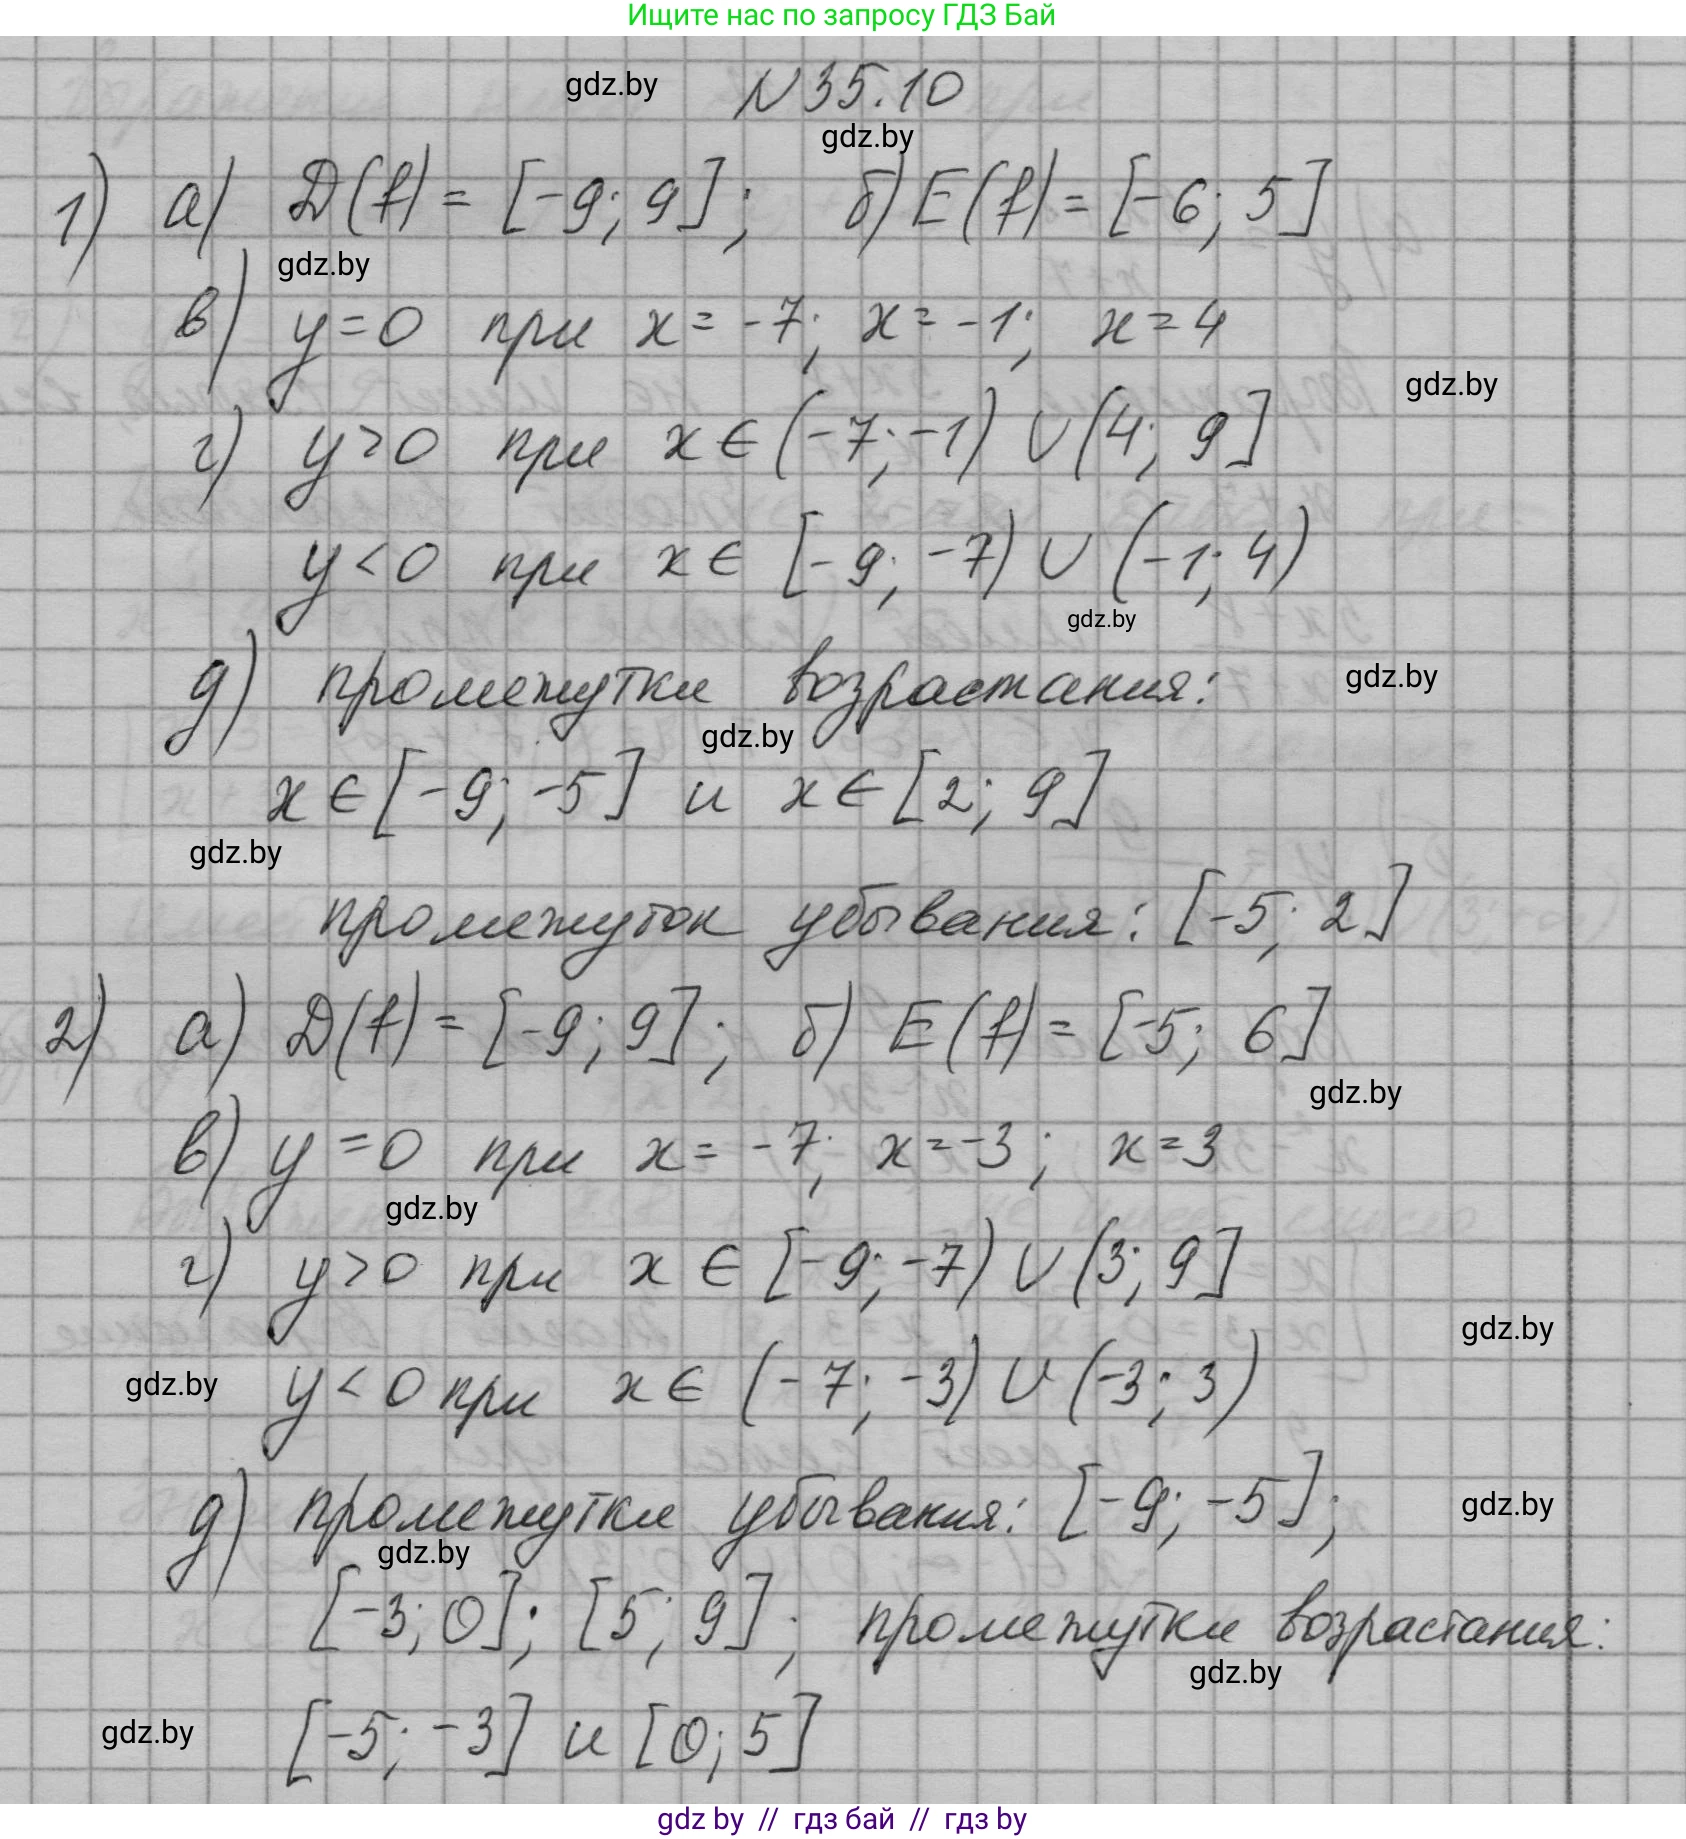 Ищите нас по запросу ГДЗ Бай
gdz.by
N 35.10
gdz.by
1) а) D(f) = [-9; 9]; б) E(f) = [-6; 5]
gdz.by
в) y=0 при x= -7; x= -1; x=4
gdz.by
г) y>0 при x∈(-7; -1) ∪ (4; 9]
y<0 при x∈ [-9; -7) ∪ (-1; 4)
gdz.by
д) промежутки возрастания:
gdz.by
gdz.by
x∈[-9; -5] и x∈[2; 9]
gdz.by
промежуток убывания: [-5; 2]
2) а) D(f) = [-9; 9]; б) E(f) = [-5; 6]
gdz.by
в) y=0 при x= -7; x=-3; x=3
gdz.by
г) y>0 при x∈ [-9; -7) ∪ (3; 9]
gdz.by
gdz.by
y<0 при x∈ (-7; -3) ∪ (-3; 3)
д) промежутки убывания: [-9; -5];
gdz.by
gdz.by
[-3; 0]; [5; 9]; промежутки возрастания:
gdz.by
gdz.by
[-5; -3] и [0; 5]
gdz by // гдз бай // гдз by